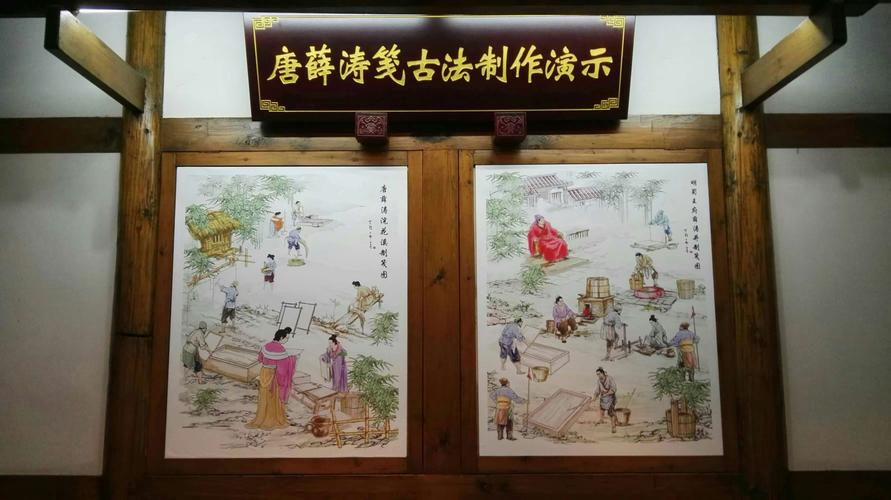 唐薛涛笺古法制作演示
唐薛涛浣花溪制笺图
明蜀王府薛涛井制笺图